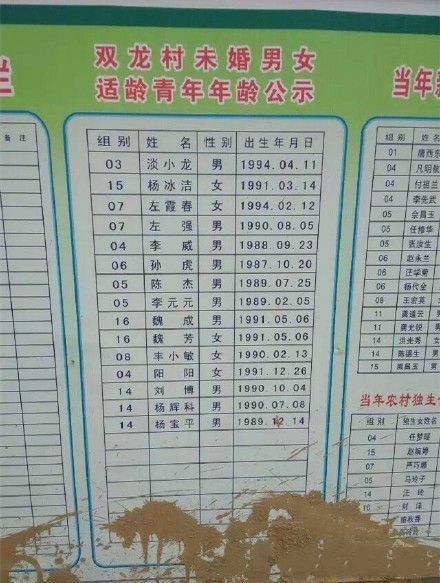 双龙村未婚男女
适龄青年年龄公示
组别 姓名 性别 出生年月日
03 淡小龙 男 1994.04.11
15 杨冰洁 女 1991.03.14
07 左霞春 女 1994.02.12
07 左强 男 1990.08.05
04 李威 男 1988.09.23
06 孙虎 男 1987.10.20
05 陈杰 男 1989.07.25
05 李元元 男 1989.02.05
16 魏成 男 1991.05.06
16 魏芳 女 1991.05.06
08 丰小敏 女 1990.02.13
04 阳阳 女 1991.12.26
14 刘博 男 1990.10.04
14 杨辉科 男 1990.07.08
14 杨宝平 男 1989.12.14
栏
备注
当年
组别 姓名
01
04
04 付祖兰
04 李先武
05 余昌玉
05 任修华
05 张汝生
06 赵永兰
06 汪学菊
06 杨代全
08 王宏英
11 龚道云 男
11 龚光锐 男
14 洪光秀 女
14 陈德生 男
15 男
当年农村独生
组别 独生女姓名
04 任梦瑶
15 赵婉婷
07 严巧娜
05 马玲子
14 汪玲
10 刘洋